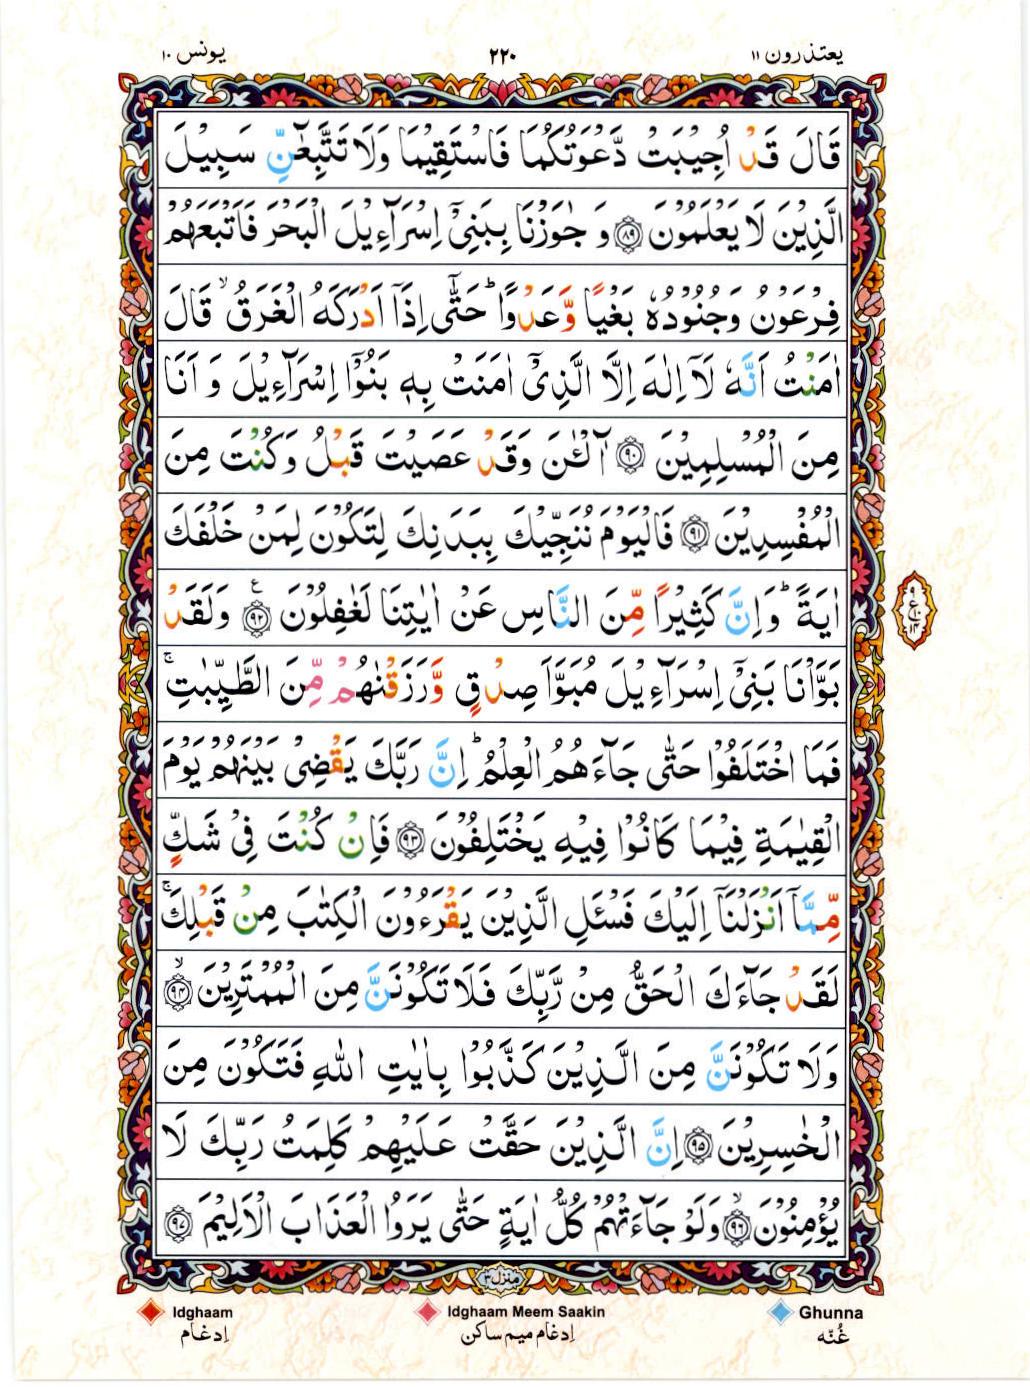 يعتذرون ١١
٢٢٠
يونس ١٠
قَالَ قَدْ اُجِيْبَتْ دَّعْوَتُكُمَا فَاسْتَقِيْمَا وَلَا تَتَّبِعٰٓنِّ سَبِيْلَ
الَّذِيْنَ لَا يَعْلَمُوْنَ ﴿٨٩﴾ وَ جٰوَزْنَا بِبَنِيْۤ اِسْرَآءِيْلَ الْبَحْرَ فَاَتْبَعَهُمْ
فِرْعَوْنُ وَجُنُوْدُهٗ بَغْيًا وَّعَدْوًا ؕ حَتّٰۤى اِذَاۤ اَدْرَكَهُ الْغَرَقُ ۙ قَالَ
اٰمَنْتُ اَنَّهٗ لَاۤ اِلٰهَ اِلَّا الَّذِيْۤ اٰمَنَتْ بِهٖ بَنُوْۤا اِسْرَآءِيْلَ وَ اَنَا
مِنَ الْمُسْلِمِيْنَ ﴿٩٠﴾ آٰلْـٰٔنَ وَقَدْ عَصَيْتَ قَبْلُ وَكُنْتَ مِنَ
الْمُفْسِدِيْنَ ﴿٩١﴾ فَالْيَوْمَ نُنَجِّيْكَ بِبَدَنِكَ لِتَكُوْنَ لِمَنْ خَلْفَكَ
اٰيَةً ؕ وَاِنَّ كَثِيْرًا مِّنَ النَّاسِ عَنْ اٰيٰتِنَا لَغٰفِلُوْنَ ﴿٩٢﴾ ع وَلَقَدْ
بَوَّاْنَا بَنِيْۤ اِسْرَآءِيْلَ مُبَوَّاَ صِدْقٍ وَّرَزَقْنٰهُمْ مِّنَ الطَّيِّبٰتِ ۚ
فَمَا اخْتَلَفُوْا حَتّٰى جَآءَهُمُ الْعِلْمُ ؕ اِنَّ رَبَّكَ يَقْضِيْ بَيْنَهُمْ يَوْمَ
الْقِيٰمَةِ فِيْمَا كَانُوْا فِيْهِ يَخْتَلِفُوْنَ ﴿٩٣﴾ فَاِنْ كُنْتَ فِيْ شَكٍّ
مِّمَّاۤ اَنْزَلْنَاۤ اِلَيْكَ فَسْـَٔلِ الَّذِيْنَ يَقْرَءُوْنَ الْكِتٰبَ مِنْ قَبْلِكَ ۚ
لَقَدْ جَآءَكَ الْحَقُّ مِنْ رَّبِّكَ فَلَا تَكُوْنَنَّ مِنَ الْمُمْتَرِيْنَ ۙ ﴿٩٤﴾
وَلَا تَكُوْنَنَّ مِنَ الَّذِيْنَ كَذَّبُوْا بِاٰيٰتِ اللّٰهِ فَتَكُوْنَ مِنَ
الْخٰسِرِيْنَ ﴿٩٥﴾ اِنَّ الَّذِيْنَ حَقَّتْ عَلَيْهِمْ كَلِمَتُ رَبِّكَ لَا
يُؤْمِنُوْنَ ۙ ﴿٩٦﴾ وَلَوْ جَآءَتْهُمْ كُلُّ اٰيَةٍ حَتّٰى يَرَوُا الْعَذَابَ الْاَلِيْمَ ﴿٩٧﴾
منزل ٣
Idghaam
ادغام
Idghaam Meem Saakin
ادغام میم ساکن
Ghunna
غُنّه